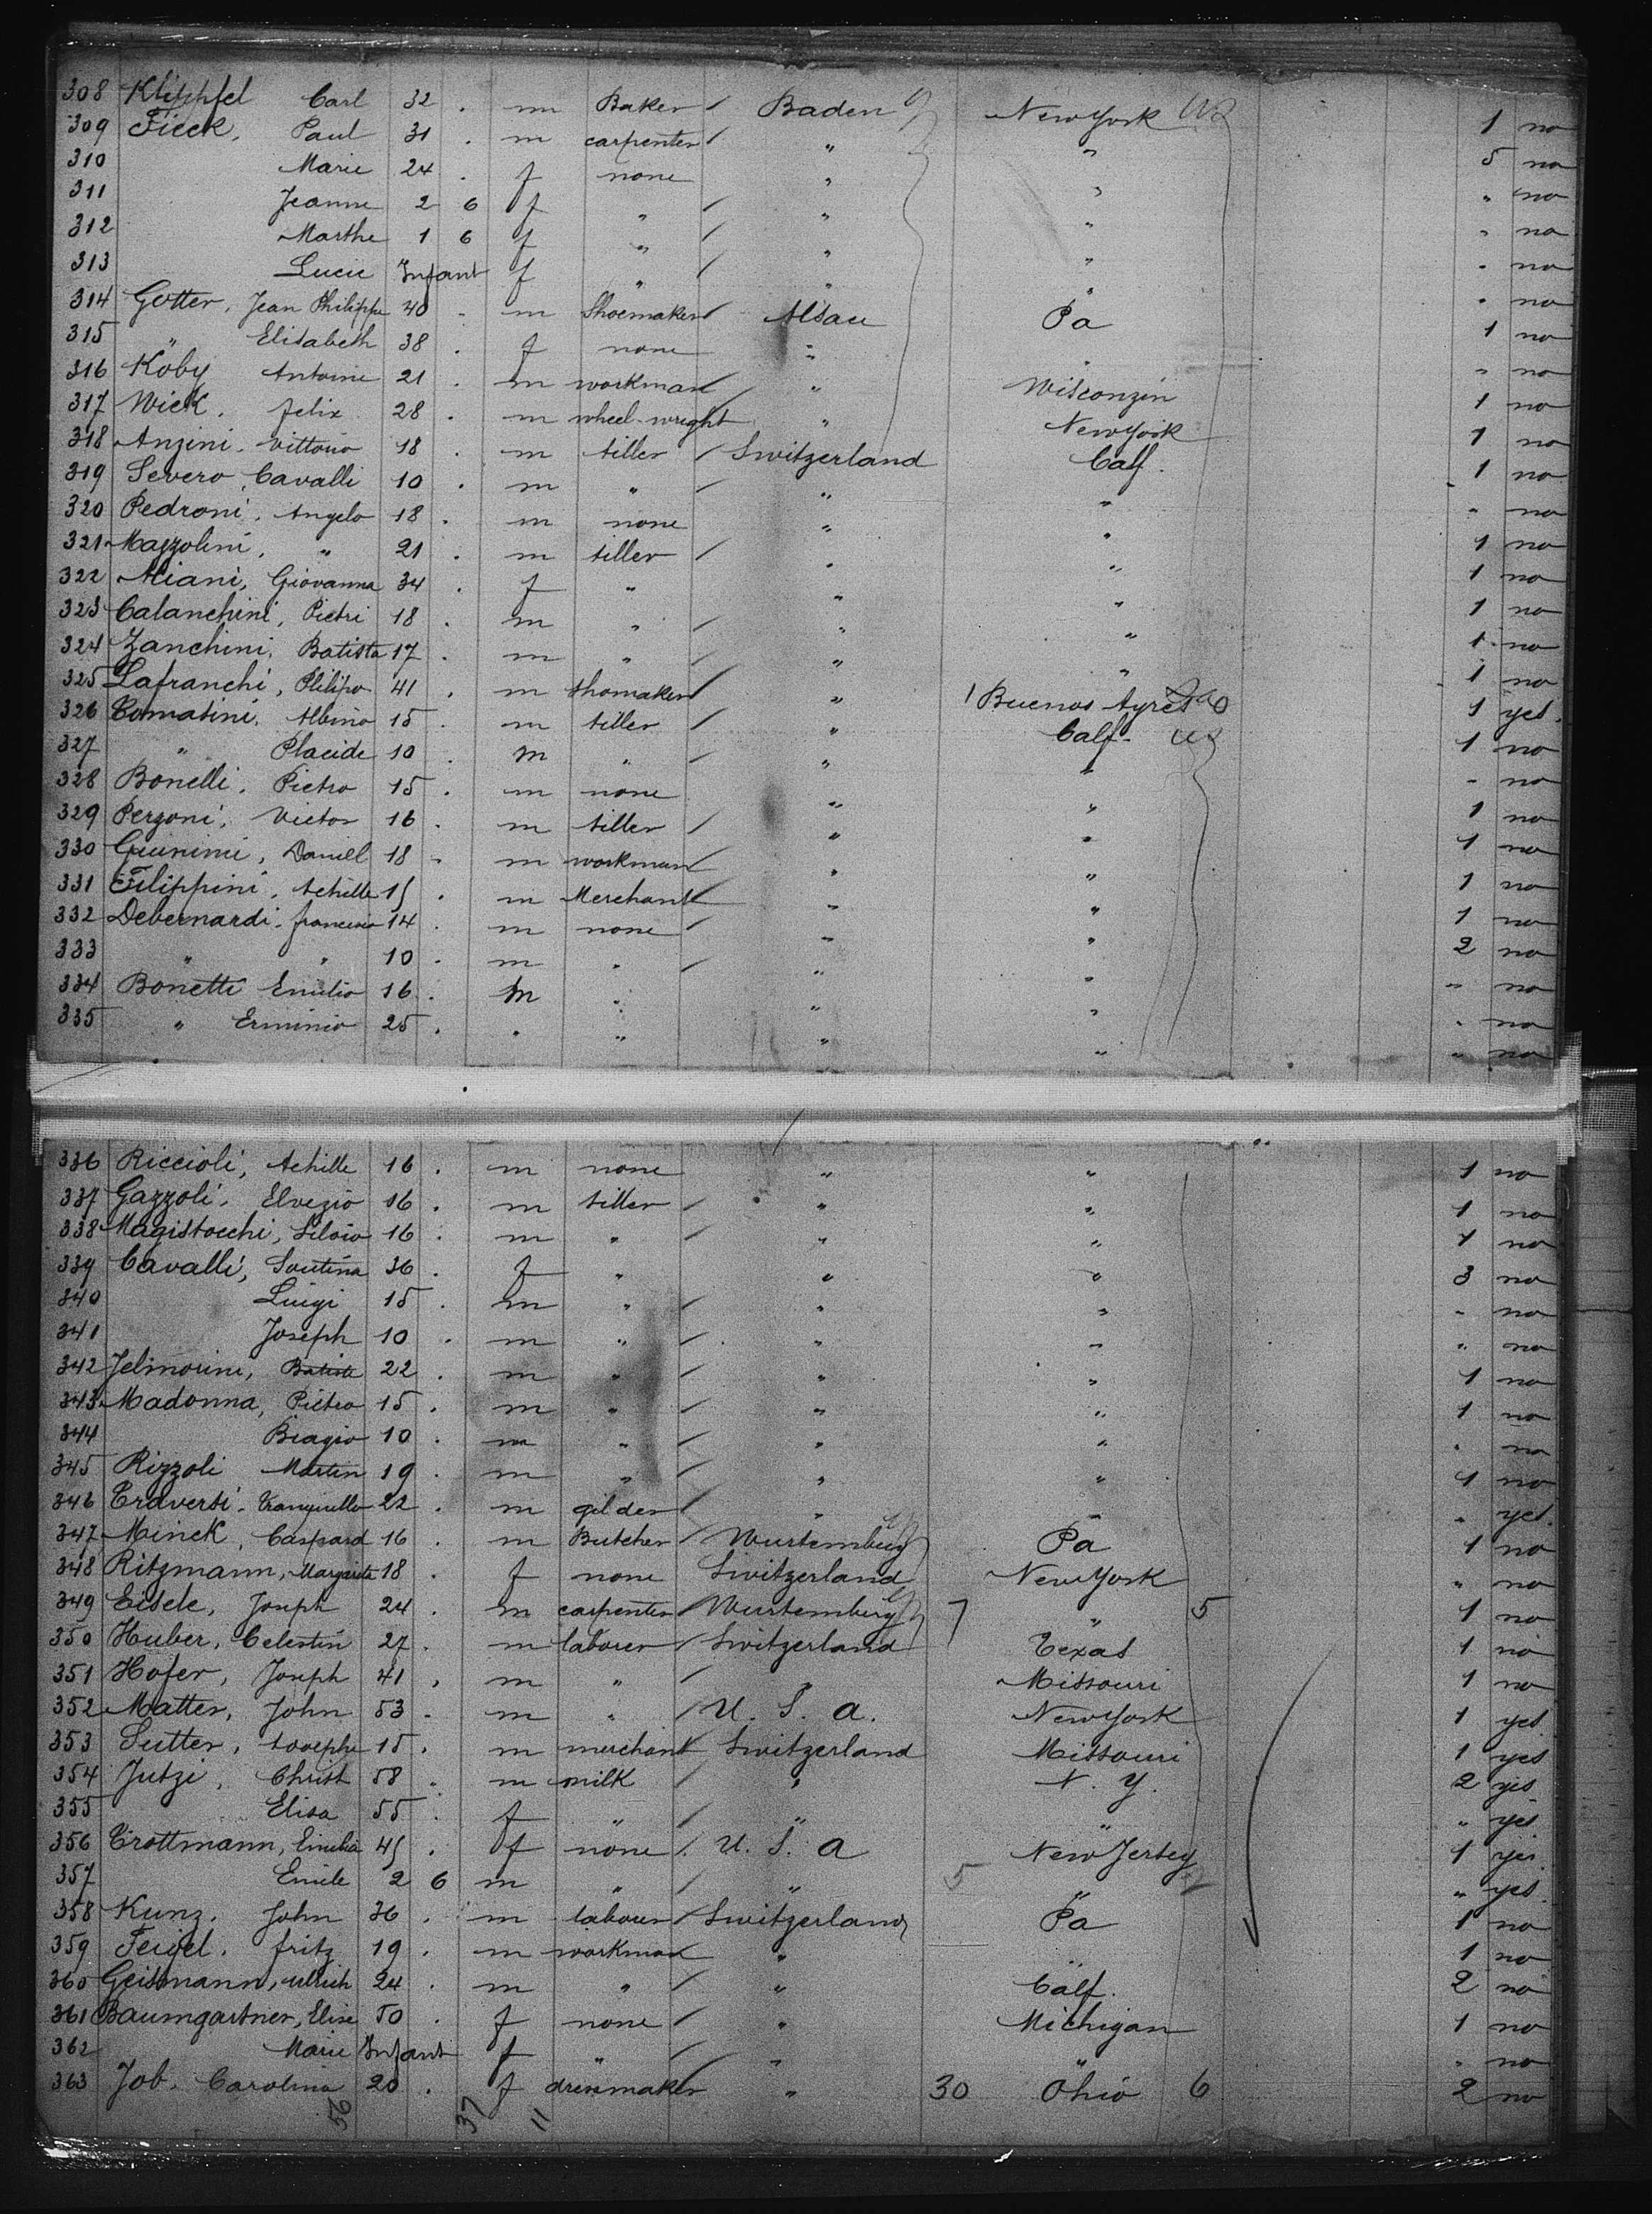 308 Klipfel Carl 32 . m Baker / Baden New York U2 1 no
309 Fieck, Paul 31 . m carpenter / " " 5 no
310 Marie 24 . f none " " " no
311 Jeanne 2 6 f " / " " " no
312 Marthe 1 6 f " / " " " no
313 Lucie Infant f " / " " " no
314 Gotter, Jean Philippe 40 - m Shoemaker / Alsace Pa 1 no
315 " Elisabeth 38 . f none " " " no
316 Koby Antoine 21 . m workman / " Wisconzin 1 no
317 Wick, felix 28 . m wheel-wright " New York 1 no
318 Anzini, Vittorio 18 . m tiller / Switzerland Calf. 1 no
319 Severo, Cavalli 10 . m " / " " " no
320 Pedroni, Angelo 18 . m none " " 1 no
321 Mazzolini, " 21 . m tiller / " " 1 no
322 Miani, Giovanna 34 . f " " " 1 no
323 Calanchini, Pietri 18 . m " / " " 1 no
324 Zanchini, Batista 17 . m " / " " 1 no
325 Lafranchi, Philipo 41 . m shomaker / " 1 Buenos Ayres 1 yes.
326 Comatini, Albino 15 . m tiller / " Calf. US 1 no
327 " Placide 10 . m " / " " - no
328 Bonelli, Pietro 15 . m none " " 1 no
329 Perzoni, Victor 16 . m tiller / " " 1 no
330 Giunini, Daniell 18 - m workman / " " 1 no
331 Filippini, Achille 15 . m Merchant / " " 1 no
332 Debernardi, francesco 14 . m none / " " 2 no
333 " " 10 . m " / " " " no
334 Bonetti Emilio 16 . m " " " " no
335 " Erminio 25 . " " " " " no
336 Riccioli, Achille 16 . m none " " 1 no
337 Gazzoli, Elvezio 16 . m tiller / " " 1 no
338 Magistocchi, Silvio 16 . m " / " " 1 no
339 Cavalli, 36 . f " " " 3 no
340 Luigi 15 . m " / " " - no
341 Joseph 10 . m " / " " " no
342 Jelmorini, Batista 22 . m " / " " 1 no
343 Madonna, Pietro 15 . m " / " " 1 no
344 Biagio 10 . m " / " " " no
345 Rizzoli Martin 19 . m " / " " 1 no
346 Traversi, Tranquillo 22 . m gilder / " " " yes.
347 Minck, Caspard 16 . m Butcher / Wurtemberg Pa 1 no
348 Ritzmann, Margarita 18 . f none Switzerland New York " no
349 Eisele, Joseph 24 . m carpenter / Wurtemberg 7 " 5 1 no
350 Huber, Celestin 27 . m laborer / Switzerland Texas 1 no
351 Hofer, Joseph 41 , m " / " Missouri 1 no
352 Matter, John 53 - m " / U. S. A. New York 1 yes.
353 Sutter, 15 . m merchant Switzerland Missouri 1 yes
354 Jutzi, Christ 58 . m milk / " N. Y. 2 yes
355 Elisa 55 . f " / " " " yes
356 Trottmann, Emilia 45 . f none / U. S. A New Jersey 1 yes.
357 Emile 2 6 m " / " 5 " " yes.
358 Kunz, John 36 . m laborer / Switzerland Pa 1 no
359 Feigel, fritz 19 . m workman " " 1 no
360 Geismann, Ulrich 24 . m " / " Calf. 2 no
361 Baumgartner, Elise 50 . f none / " Michigan 1 no
362 Marie Infant f " / " " " no
363 Job, Carolina 20 . f dressmaker " 30 Ohio 6 2 no
56 37 11